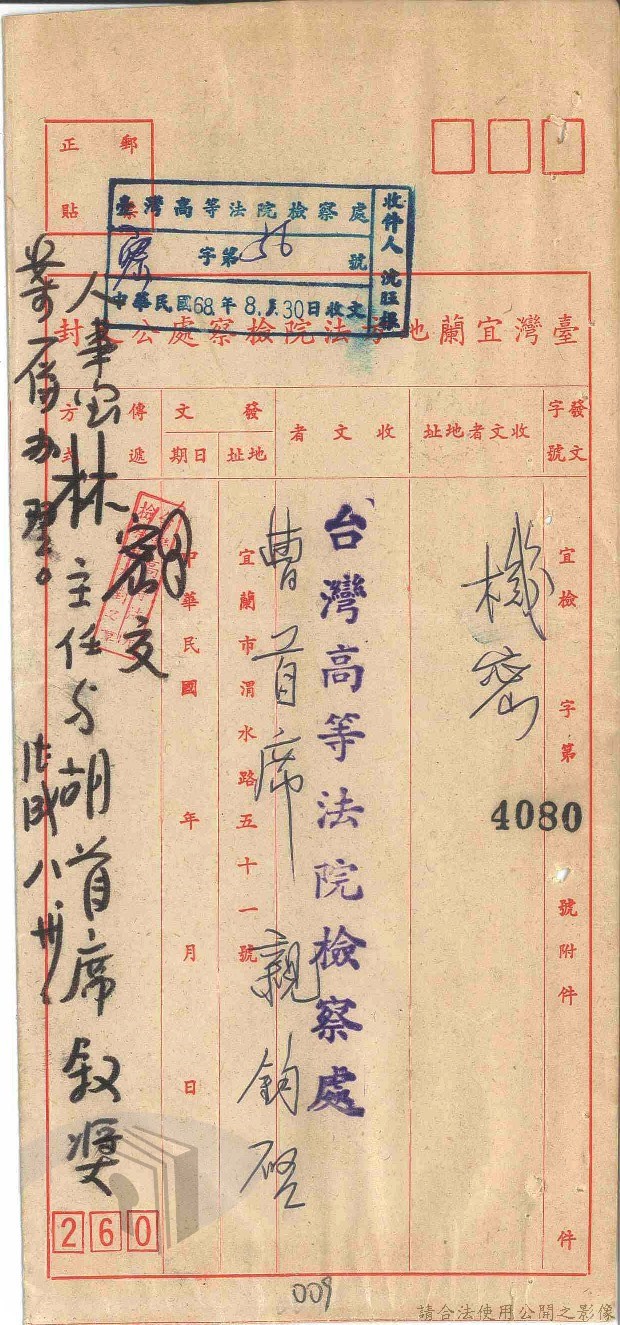 郵票
正貼
臺灣高等法院檢察處
察字第56號
中華民國68年8月30日收文
收件人 沈旺根
臺灣宜蘭地方法院檢察處公文封
發文字號
收文者地址
收文者
發文
地址
日期
傳遞
方式
宜檢 字第 4080 號附件 件
機密
台灣高等法院檢察處
曹首席 親鈞啓
宜蘭市渭水路五十一號
中華民國 年 月 日
密交
人事室林主任与胡首席敘獎
260
009
請合法使用公開之影像